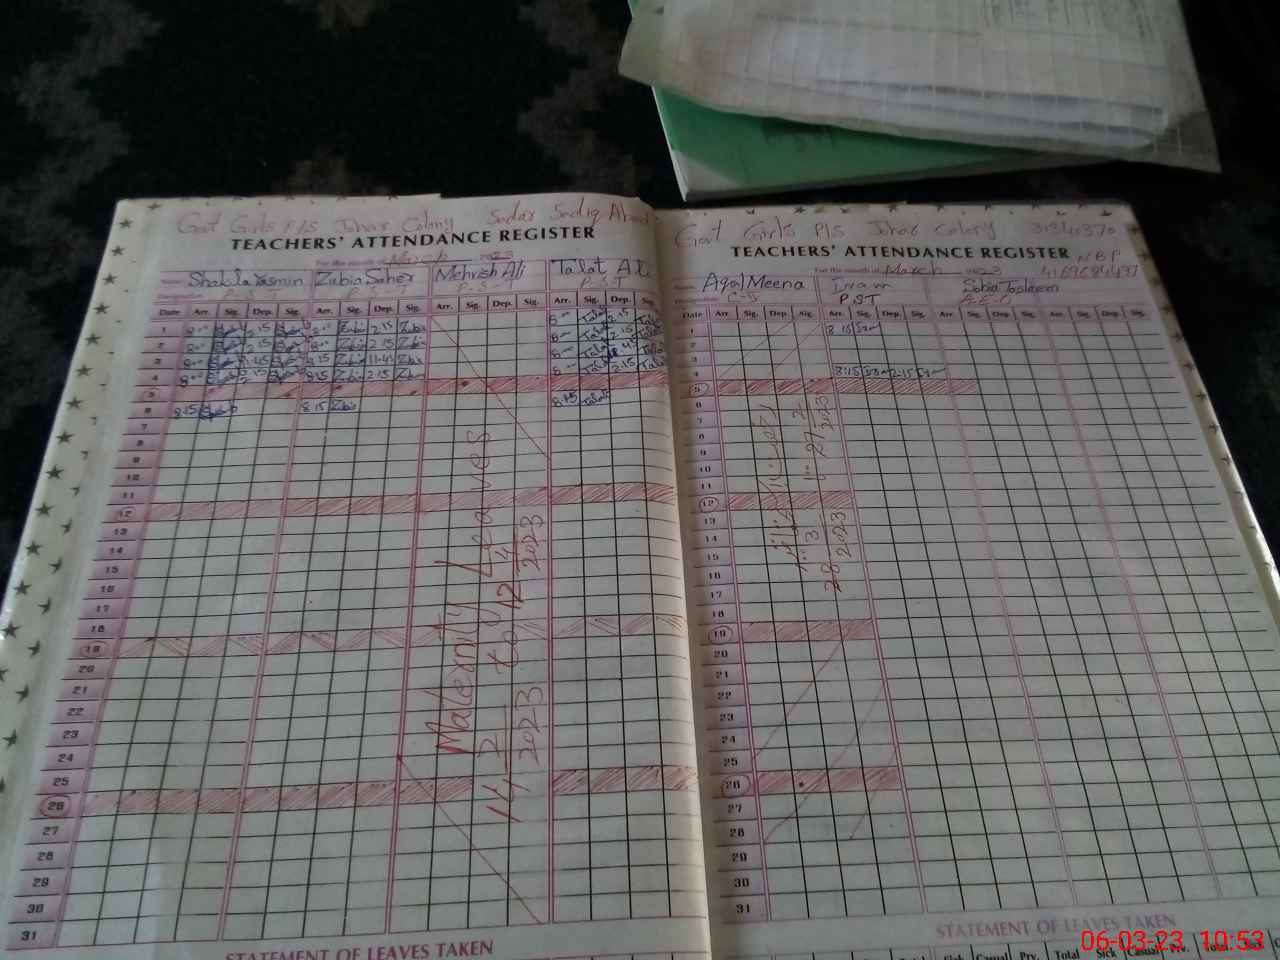 Govt Girls P/S Jhar Colony Sadar Sadiq Abad
TEACHERS' ATTENDANCE REGISTER
For the month of March 2023
Name Shakila Yasmin Zubia Saher Mehrish Ali Talat Ali
Designation P.S.T P.S.T P.S.T P.S.T
Date Arr. Sig. Dep. Sig. Arr. Sig. Dep. Sig. Arr. Sig. Dep. Sig. Arr. Sig. Dep. Sig.
1 8:00 2.15 8:00 Zubia 2.15 Zubia 8:00 Talat 2.15 Talat
2 8:00 2.15 8:00 Zubia 2.15 Zubia 8:00 Talat 2.15 Talat
3 8:00 11.45 8.15 Zubia 11.45 Zubia 8:00 Talat Talat
4 8:00 8.15 Zubia 2.15 Zubia 8:00 Talat 2.15 Talat
5
6 8.15 8.15 Zubia 8.15 Talat
7
8
9
10
11
12
13
14
15
16
17
18
19
20
21
22
23
24
25
26
27
28
29
30
31
Maternity Leaves
14 2 2023 to 12 4 2023
STATEMENT OF LEAVES TAKEN
Govt Girls P/S Jhar Colony 31314370
TEACHERS' ATTENDANCE REGISTER
For the month of March 2023 NBP
4169684497
Name Aqal Meena Inam Sobia Tasleem
Designation C-5 P.S.T A.E.O
Date Arr. Sig. Dep. Sig. Arr. Sig. Dep. Sig. Arr. Sig. Dep. Sig. Arr. Sig. Dep. Sig.
1 8.15
2
3
4 8.15 2.15
5
6
7
8
9
10
11
12
13
14
15
16
17
18
19
20
21
22
23
24
25
26
27
28
29
30
31
27 2 2023
28 3 2023
STATEMENT OF LEAVES TAKEN
Sick Casual Prv. Total Sick Casual Prv. Total
06-03-23 10:53